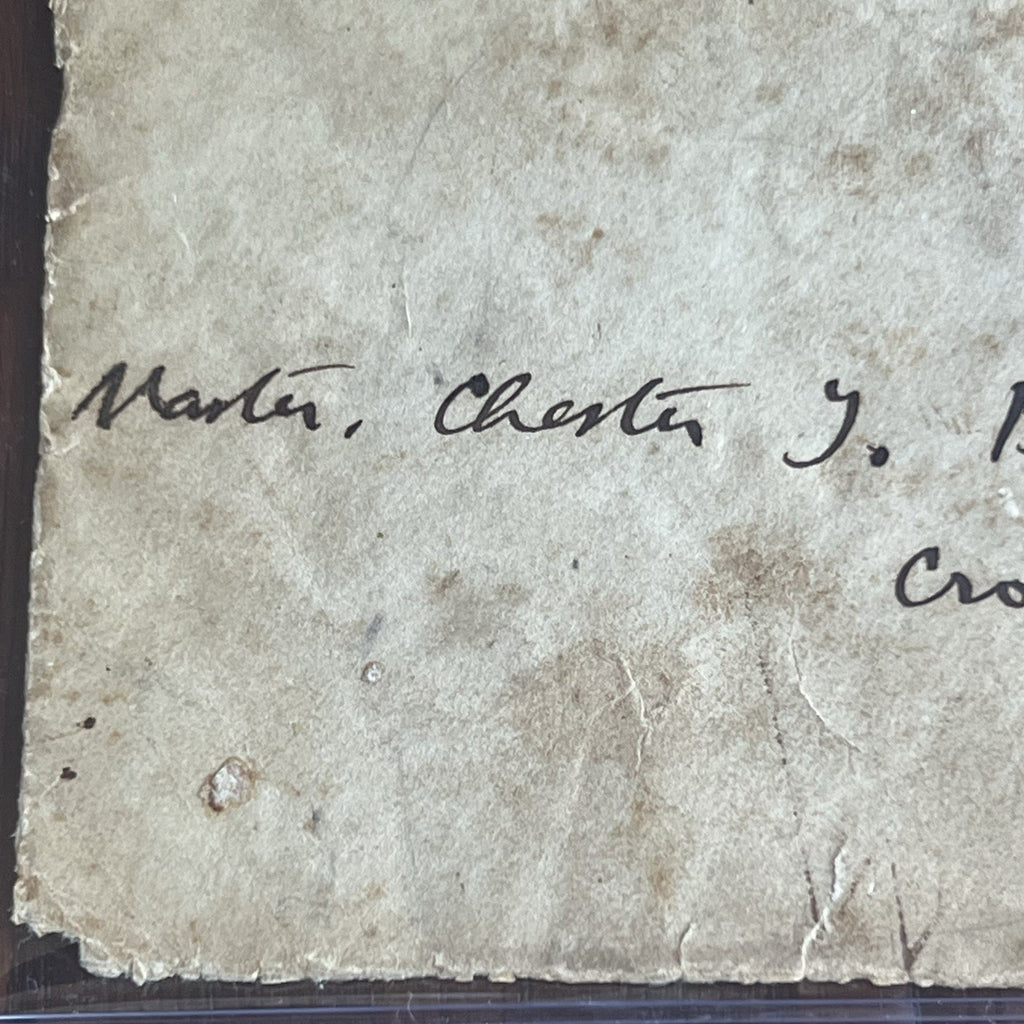 Master, Chester Y. B
Cro